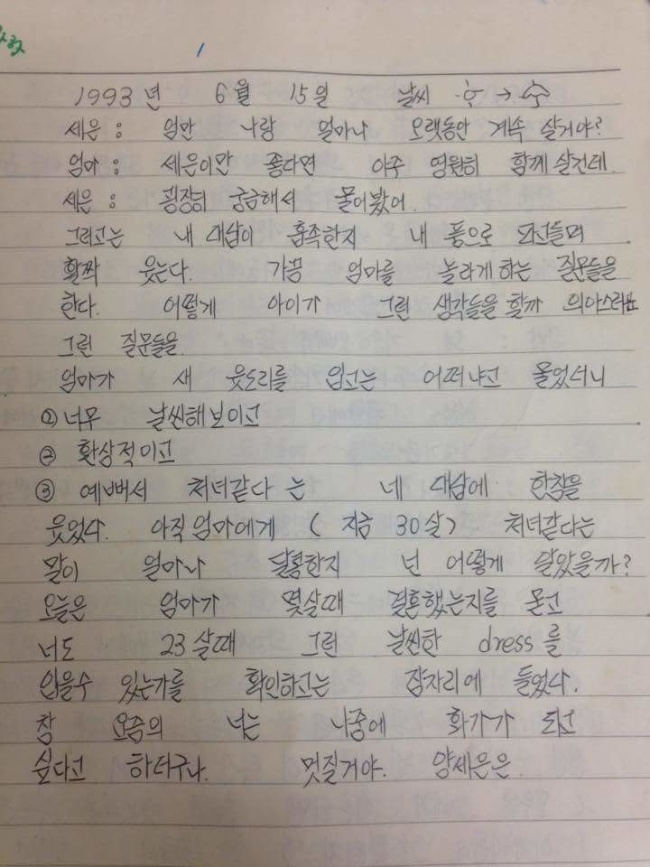 1993년 6월 15일 날씨 → 
세은 : 엄만 나랑 얼마나 오랫동안 계속 살거야?
엄마 : 세은이만 좋다면 아주 영원히 함께 살건데.
세은 : 굉장히 궁금해서 물어봤어.
그러고는 내 대답이 흡족한지 내 품으로 파고들며
활짝 웃는다. 가끔 엄마를 놀라게 하는 질문들을
한다. 어떻게 아이가 그런 생각들을 할까 의아스러운
그런 질문들을.
엄마가 새 웃도리를 입고는 어떠냐고 물었더니
①너무 날씬해보이고
② 환상적이고
③ 예뻐서 처녀같다 는 네 대답에 한참을
웃었다. 아직 엄마에게 ( 지금 30살) 처녀같다는
말이 얼마나 달콤한지 넌 어떻게 알았을까?
오늘은 엄마가 몇살때 결혼했는지를 묻고
너도 23살때 그런 날씬한 dress를
입을수 있는가를 확인하고는 잠자리에 들었다.
참 요즘의 너는 나중에 화가가 되고
싶다고 하더구나. 멋질거야. 양세은은.